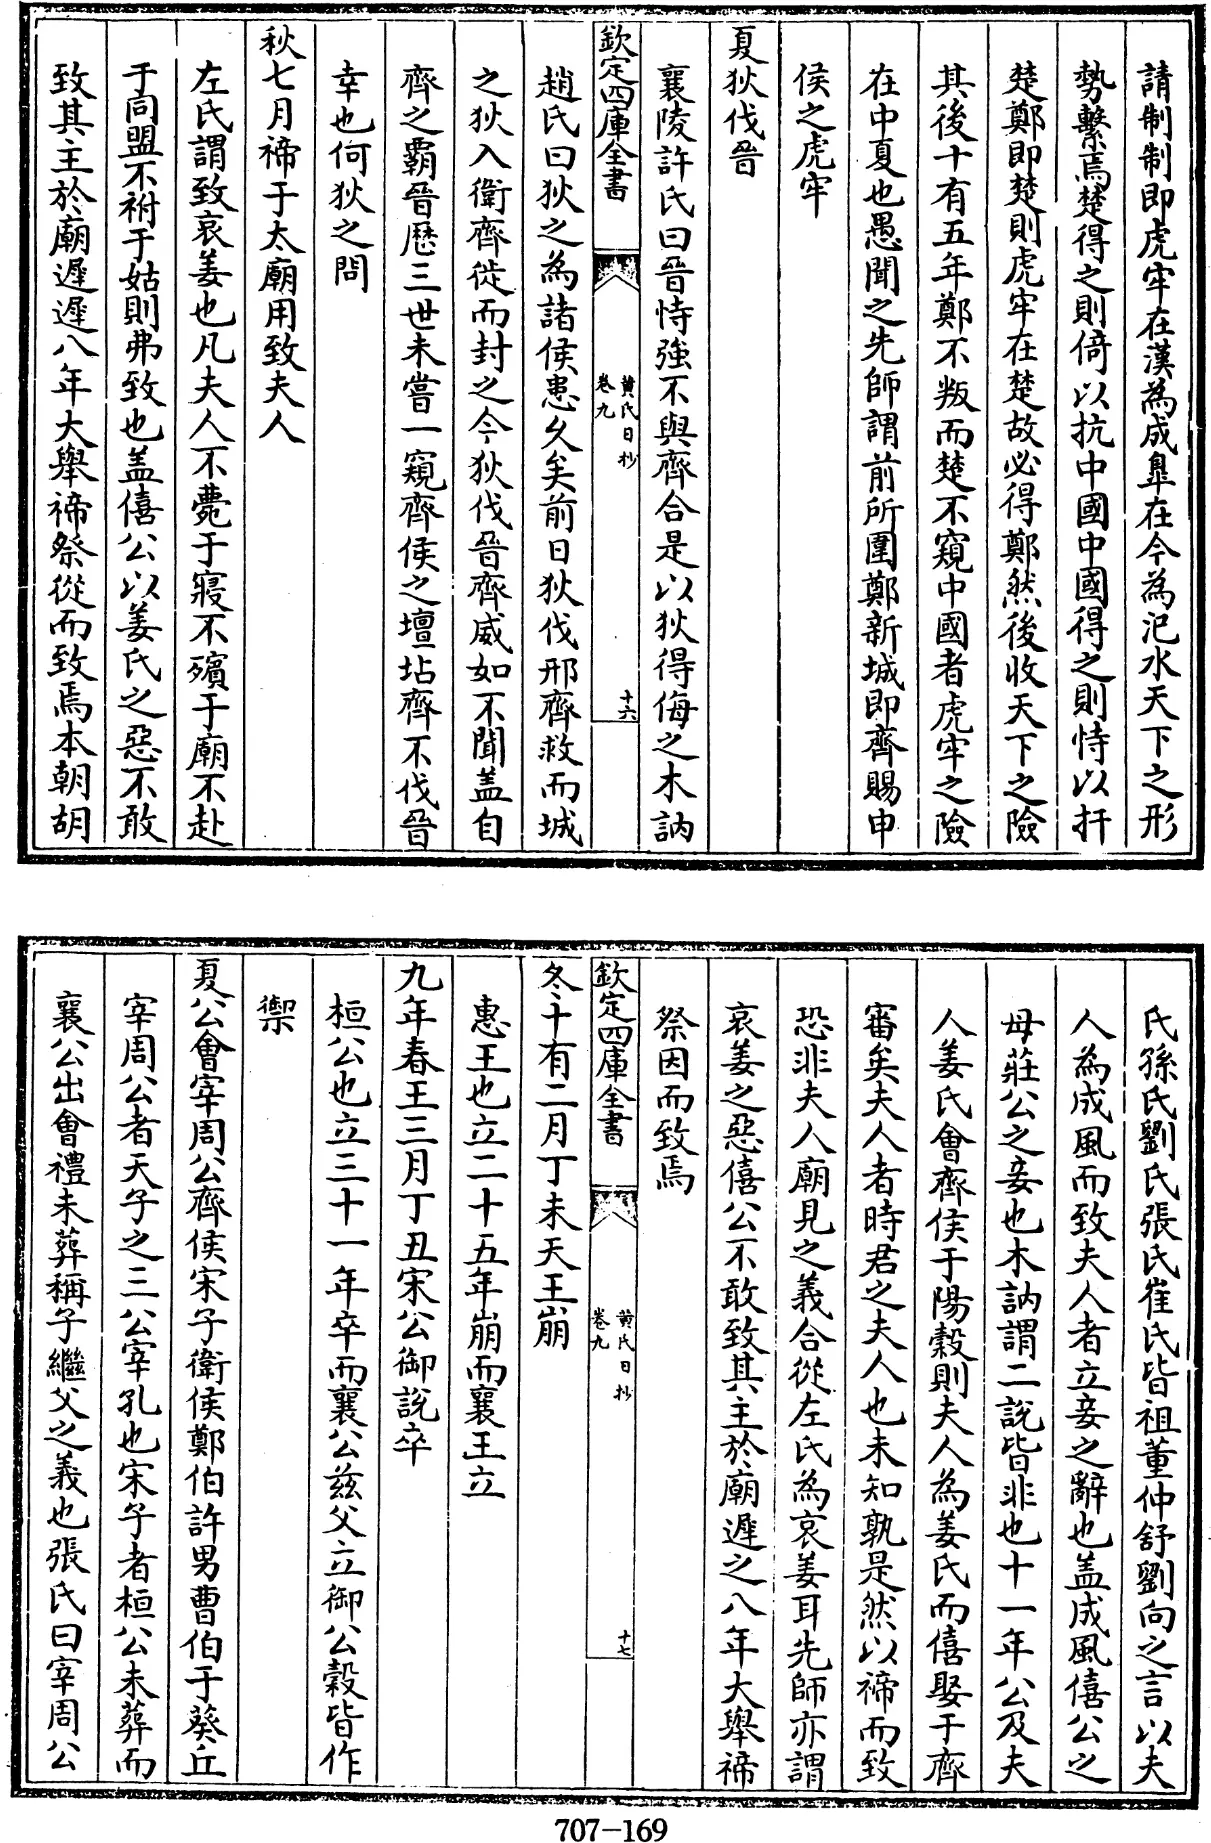 請制制即虎牢在漢為成臯在今為汜水天下之形
勢繫焉楚得之則倚以抗中國中國得之則恃以扞
楚鄭即楚則虎牢在楚故必得鄭然後收天下之險
其後十有五年鄭不叛而楚不窺中國者虎牢之險
在中夏也愚聞之先師謂前所圍鄭新城即齊賜申
侯之虎牢
夏狄伐晉
襄陵許氏曰晉恃強不與齊合是以狄得侮之木訥
欽定四庫全書
黄氏日抄
卷九
十六
趙氏曰狄之為諸侯患久矣前日狄伐邢齊救而城
之狄入衛齊徙而封之今狄伐晉齊威如不聞盖自
齊之霸晉歴三世未嘗一窺齊侯之壇坫齊不伐晉
幸也何狄之問
秋七月禘于太廟用致夫人
左氏謂致哀姜也凡夫人不薨于寢不殯于廟不赴
于同盟不祔于姑則弗致也盖僖公以姜氏之惡不敢
致其主於廟遲遲八年大舉禘祭從而致焉本朝胡
氏孫氏劉氏張氏崔氏皆祖董仲舒劉向之言以夫
人為成風而致夫人者立妾之辭也盖成風僖公之
母莊公之妾也木訥謂二說皆非也十一年公及夫
人姜氏會齊侯于陽穀則夫人為姜氏而僖娶于齊
審矣夫人者時君之夫人也未知孰是然以禘而致
恐非夫人廟見之義合從左氏為哀姜耳先師亦謂
哀姜之惡僖公不敢致其主於廟遲之八年大舉禘
祭因而致焉
欽定四庫全書
黄氏日抄
卷九
十七
冬十有二月丁未天王崩
惠王也立二十五年崩而襄王立
九年春王三月丁丑宋公御說卒
桓公也立三十一年卒而襄公兹父立御公穀皆作
禦
夏公會宰周公齊侯宋子衛侯鄭伯許男曹伯于葵丘
宰周公者天子之三公宰孔也宋子者桓公未葬而
襄公出會禮未葬稱子繼父之義也張氏曰宰周公
707-169